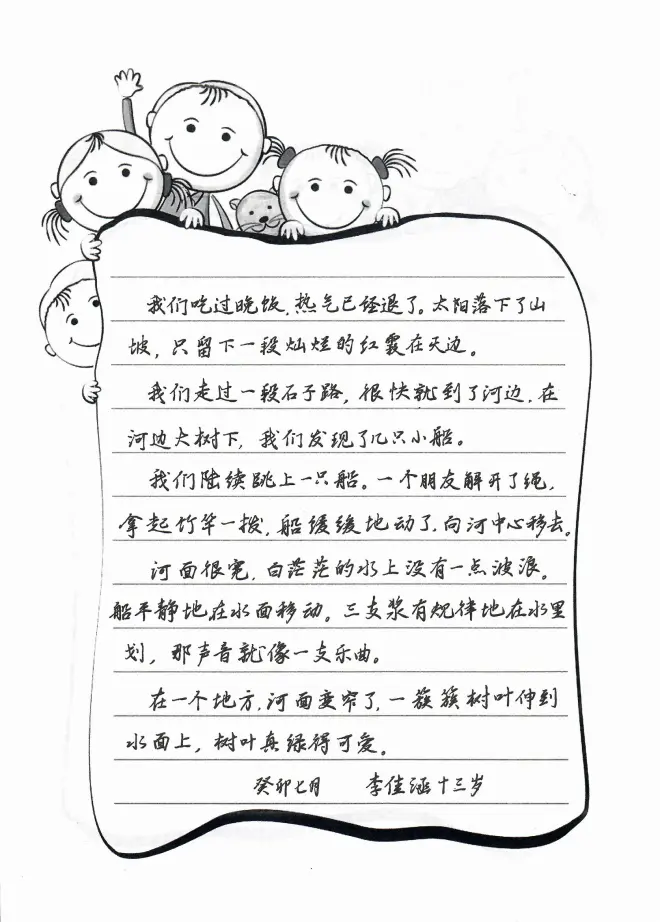 我们吃过晚饭，热气已经退了。太阳落下了山
坡，只留下一段灿烂的红霞在天边。
我们走过一段石子路，很快就到了河边，在
河边大树下，我们发现了几只小船。
我们陆续跳上一只船。一个朋友解开了绳，
拿起竹竿一拨，船缓缓地动了，向河中心移去。
河面很宽，白茫茫的水上没有一点波浪。
船平静地在水面移动。三支桨有规律地在水里
划，那声音就像一支乐曲。
在一个地方，河面变窄了，一簇簇树叶伸到
水面上，树叶真绿得可爱。
癸卯七月 李佳涵十三岁